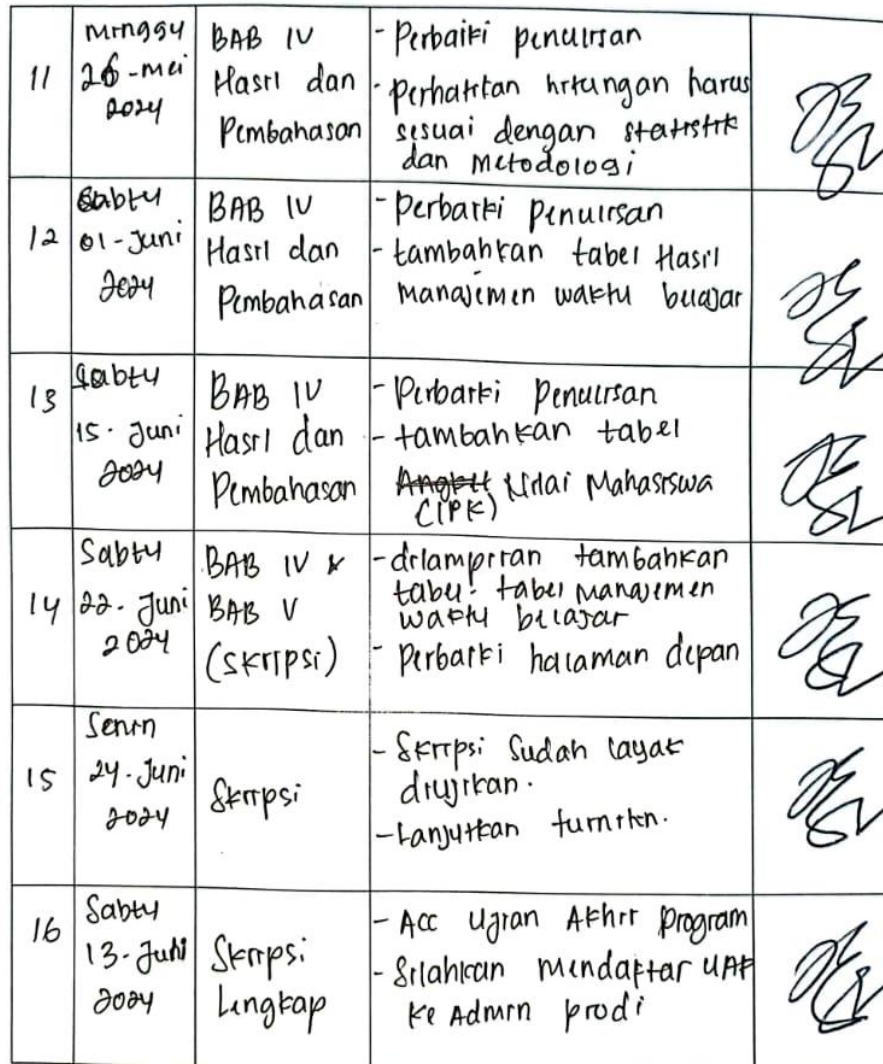 11
Minggu
26 - Mei
2024
BAB IV
Hasil dan
Pembahasan
- Perbaiki penulisan
- Perhatikan hitungan harus
sesuai dengan statistik
dan Metodologi
12
Sabtu
01 - Juni
2024
BAB IV
Hasil dan
Pembahasan
- Perbaiki Penulisan
- tambahkan tabel Hasil
Manajemen waktu belajar
13
Sabtu
15 - Juni
2024
BAB IV
Hasil dan
Pembahasan
- Perbaiki Penulisan
- tambahkan tabel
Nilai Mahasiswa
(IPK)
14
Sabtu
22 - Juni
2024
BAB IV &
BAB V
(Skripsi)
- dilampiran tambahkan
tabel-tabel manajemen
waktu belajar
- Perbaiki halaman depan
15
Senin
24 - Juni
2024
Skripsi
- Skripsi Sudah layak
diujikan.
- Lanjutkan turnitin.
16
Sabtu
13 - Juli
2024
Skripsi
Lengkap
- Acc Ujian Akhir Program
- Silahkan Mendaftar UAP
ke Admin prodi